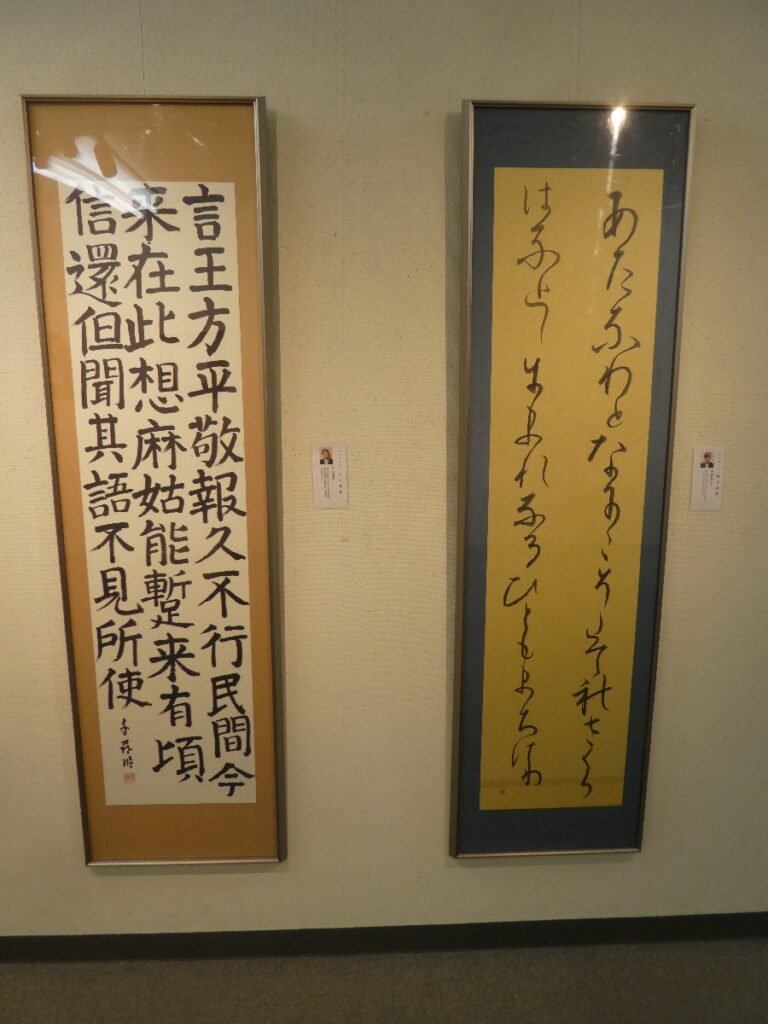 あたなりとなにこそたて礼さくら
はなとしにまれなるひともまちけり
言王方平敬報久不行民間今
来在此想麻姑能蹔来有頃
信還但聞其語不見所使